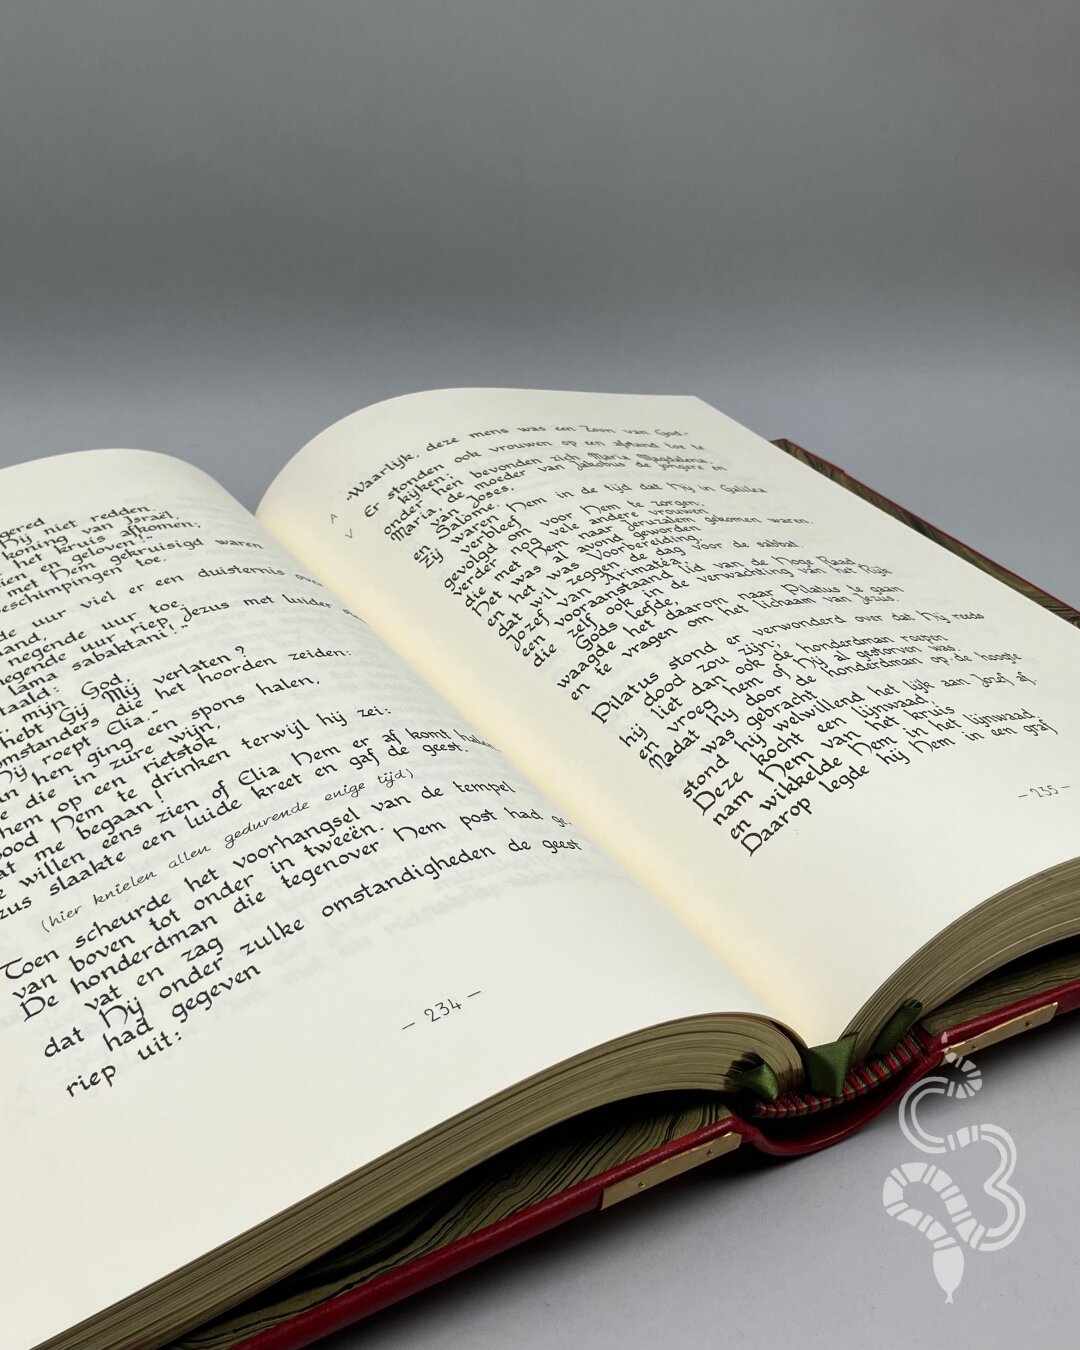 gered
Hij niet redden.
koning van Israël,
het kruis afkomen;
zien en geloven!"
met Hem gekruisigd waren
beschimpingen toe.
de uur viel er een duisternis over
land,
negende uur toe.
negende uur riep Jezus met luider
lama sabaktani!"
taald:
mijn God,
hebt Gij Mij verlaten?
omstanders die het hoorden zeiden:
Hij roept Elia."
hen ging een spons halen,
die in zure wijn,
hem op een rietstok
bood Hem te drinken terwijl hij zei:
at me begaan!
willen eens zien of Elia Hem er af komt halen.
zus slaakte een luide kreet en gaf de geest.
(hier knielen allen gedurende enige tijd)
Toen scheurde het voorhangsel van de tempel
van boven tot onder in tweeën.
De honderdman die tegenover Hem post had ge
vat en zag
dat Hij onder zulke omstandigheden de geest
had gegeven
riep uit:
– 234 –
"Waarlijk, deze mens was een Zoon van God."
Er stonden ook vrouwen op een afstand toe te
kijken;
onder hen bevonden zich Maria Magdalena,
Maria, de moeder van Jakobus de Jongere en
van Joses,
en Salome.
A
V
Zij waren Hem in de tijd dat Hij in Galilea
verbleef
gevolgd om voor Hem te zorgen;
verder nog vele andere vrouwen,
die met Hem naar Jeruzalem gekomen waren.
Het was al avond geworden
en het was Voorbereiding,
dat wil zeggen de dag voor de sabbat.
Jozef van Arimatéa,
een vooraanstaand lid van de Hoge Raad
die zelf ook in de verwachting van het Rijk
Gods leefde,
waagde het daarom naar Pilatus te gaan
en te vragen om het lichaam van Jezus.
Pilatus stond er verwonderd over dat Hij reeds
dood zou zijn;
hij liet dan ook de honderdman roepen
en vroeg hem of Hij al gestorven was.
Nadat hij door de honderdman op de hoogte
was gebracht
stond hij welwillend het lijk aan Jozef af.
Deze kocht een lijnwaad,
nam Hem van het kruis
en wikkelde Hem in het lijnwaad.
Daarop legde hij Hem in een graf
– 235 –